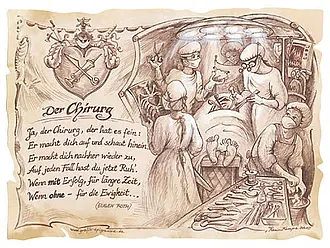 Der Chirurg
Ja, der Chirurg, der hat es fein:
Er macht dich auf und schaut hinein.
Er macht dich nachher wieder zu,
Auf jeden Fall hast du jetzt Ruh'.
Wenn mit Erfolg, für längre Zeit,
Wenn ohne - für die Ewigkeit...
(EUGEN ROTH)